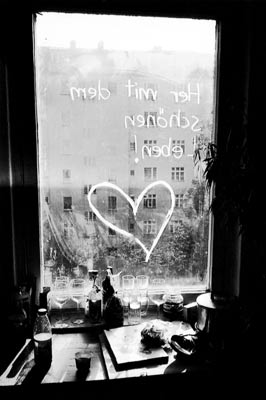 Her mit dem
schönen
Leben!